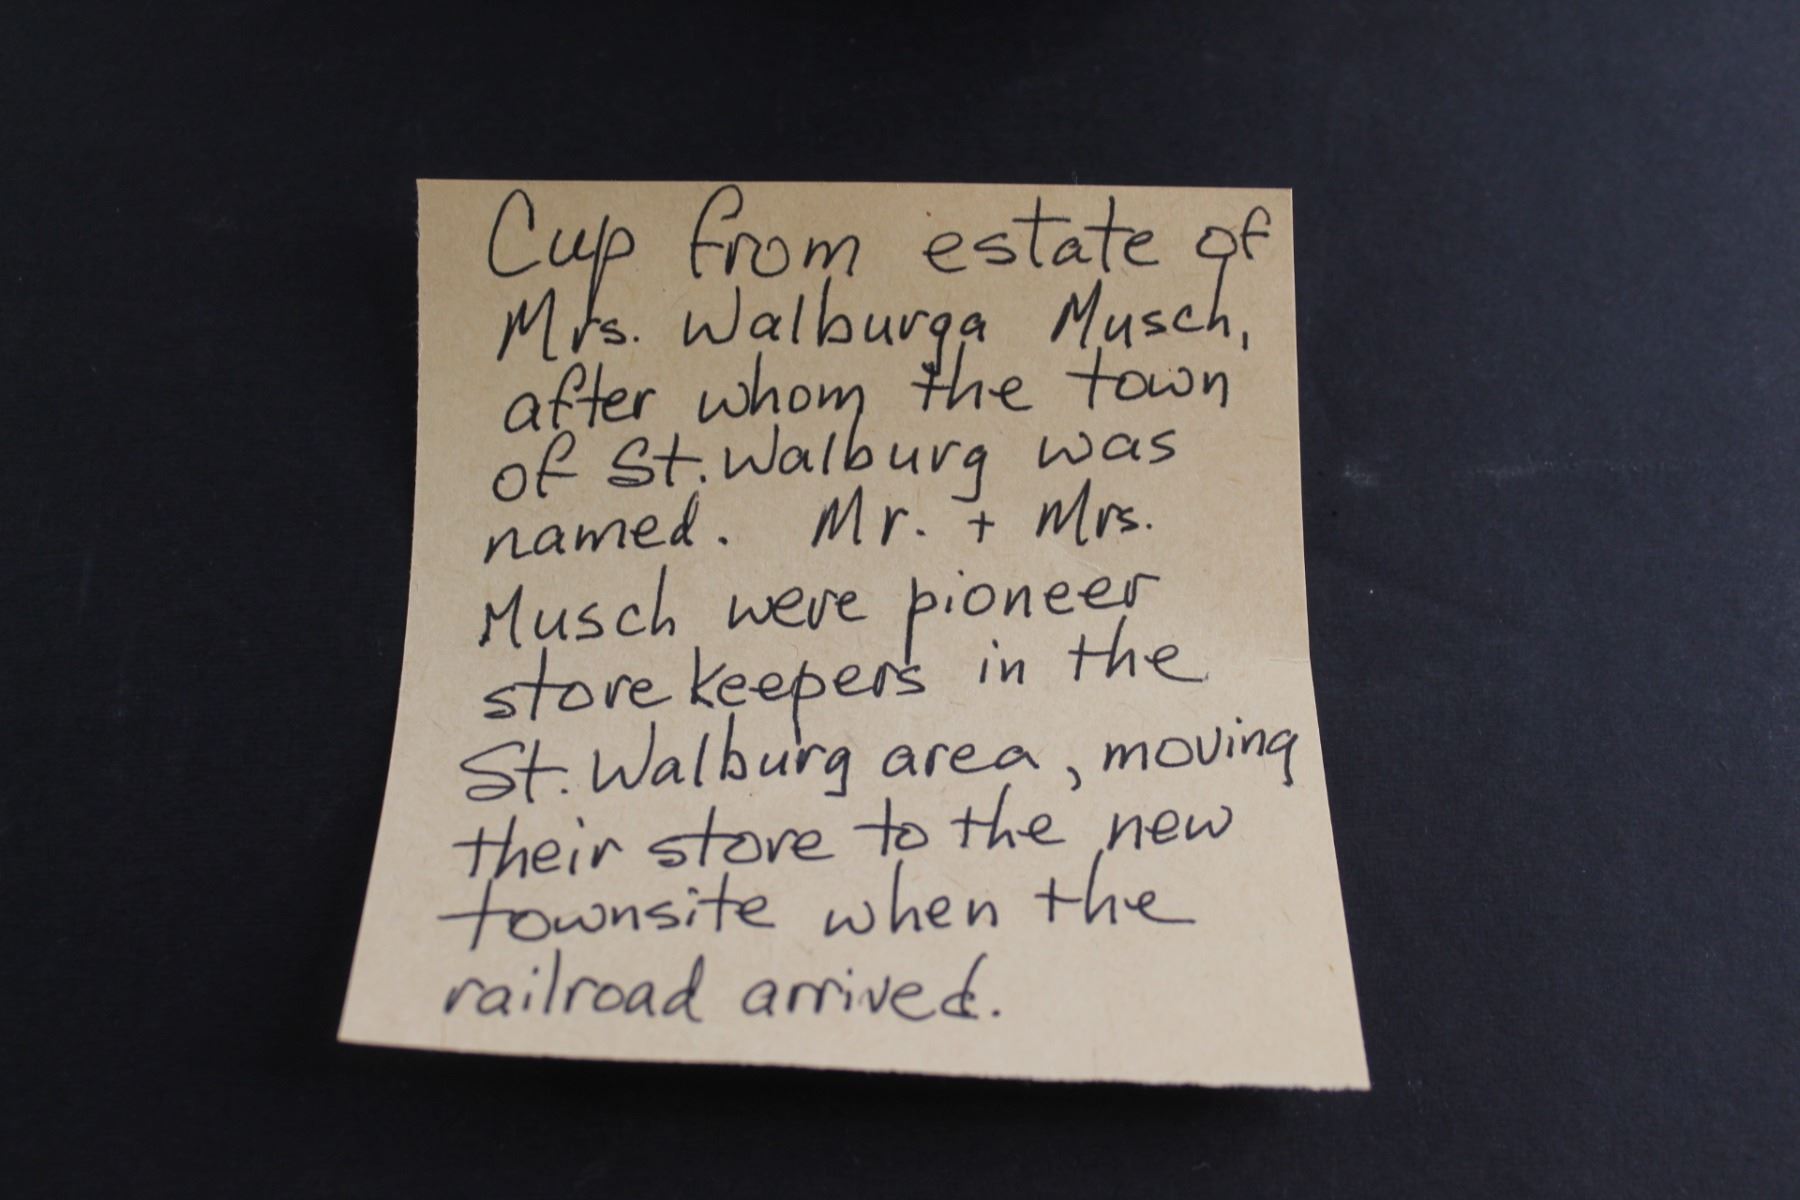 Cup from estate of
Mrs. Walburga Musch,
after whom the town
of St. Walburg was
named. Mr. + Mrs.
Musch were pioneer
storekeepers in the
St. Walburg area, moving
their store to the new
townsite when the
railroad arrived.